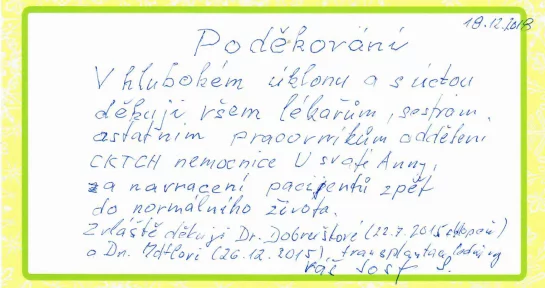 18.12.2018
Poděkování
V hlubokém úklonu a s úctou
děkuji všem lékařům, sestram,
ostatním pracovníkům oddělení
CKTCH nemocnice U svaté Anny,
za navracení pacientů zpět
do normálního života.
Zvláště děkuji Dr. Dobrušková (22.7.2015
a Dr. (26.12.2015), transplantace
váš Josef S.